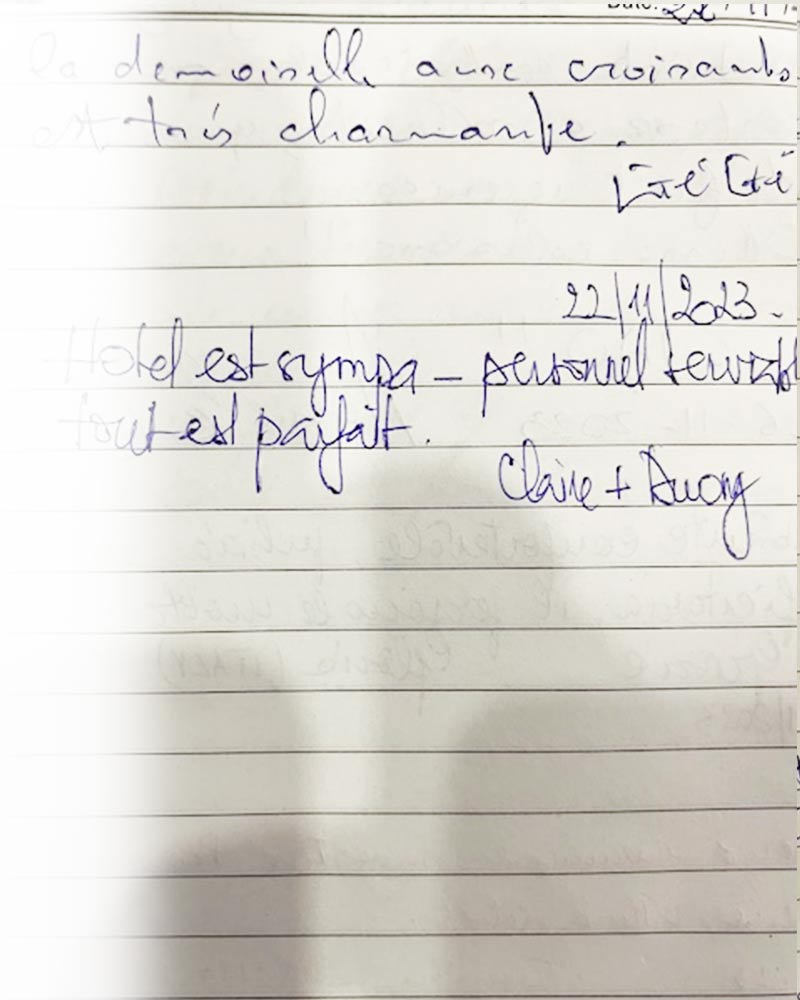 Date:
la demoiselle aux croisants
est très charmante.
22/11/2023.
Hotel est sympa – personnel
tout est parfait.
Claire + Duong